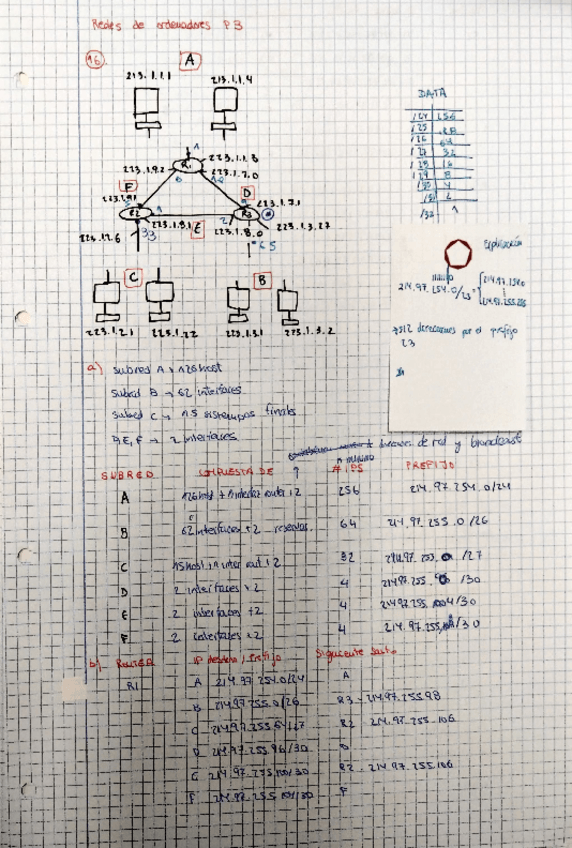 Redes de ordenadores P3
16
A
213.1.1.1
213.1.1.4
R1
223.1.9.2
223.1.1.8
223.1.7.0
F
D
R2
R3
223.1.7.1
223.1.9.1
E
223.1.8.0
223.1.3.27
C
B
223.1.2.1
223.1.3.1
DATA
/24 256
/25
/26 64
/27 32
/28 16
/29 8
/30 4
/31 2
/32 1
Explicación
214.97.254.0/23 =
214.97.255.255
+512 direcciones por el prefijo
23
a) Subred A → 126 host
Subred B → 62 interfaces
Subred C → 15 sistemas finales
D,E,F → 2 interfaces
direcciones de red y broadcast
SUBRED COMPUESTA DE # IPS PREFIJO
A 126 host + 1 interfaz router + 2 256 214.97.254.0/24
B 62 interfaces + 2 reservas. 64 214.97.255.0/26
C 15 host, 1 inter rout + 2 32 214.97.255. /27
D 2 interfaces + 2 4 214.97.255. /30
E 2 interfaces + 2 4 214.97.255. /30
F 2 interfaces + 2 4 214.97.255. /30
b) ROUTER IP destino / Prefijo Siguiente salto
R1 A 214.97.254.0/24 A
B 214.97.255.0/26 R3 - 214.97.255.98
C 214.97.255.64/27 R2 - 214.97.255.106
D 214.97.255.96/30 D
214.97.255.100/30 R2 - 214.97.255.106
F 214.97.255. /30 F